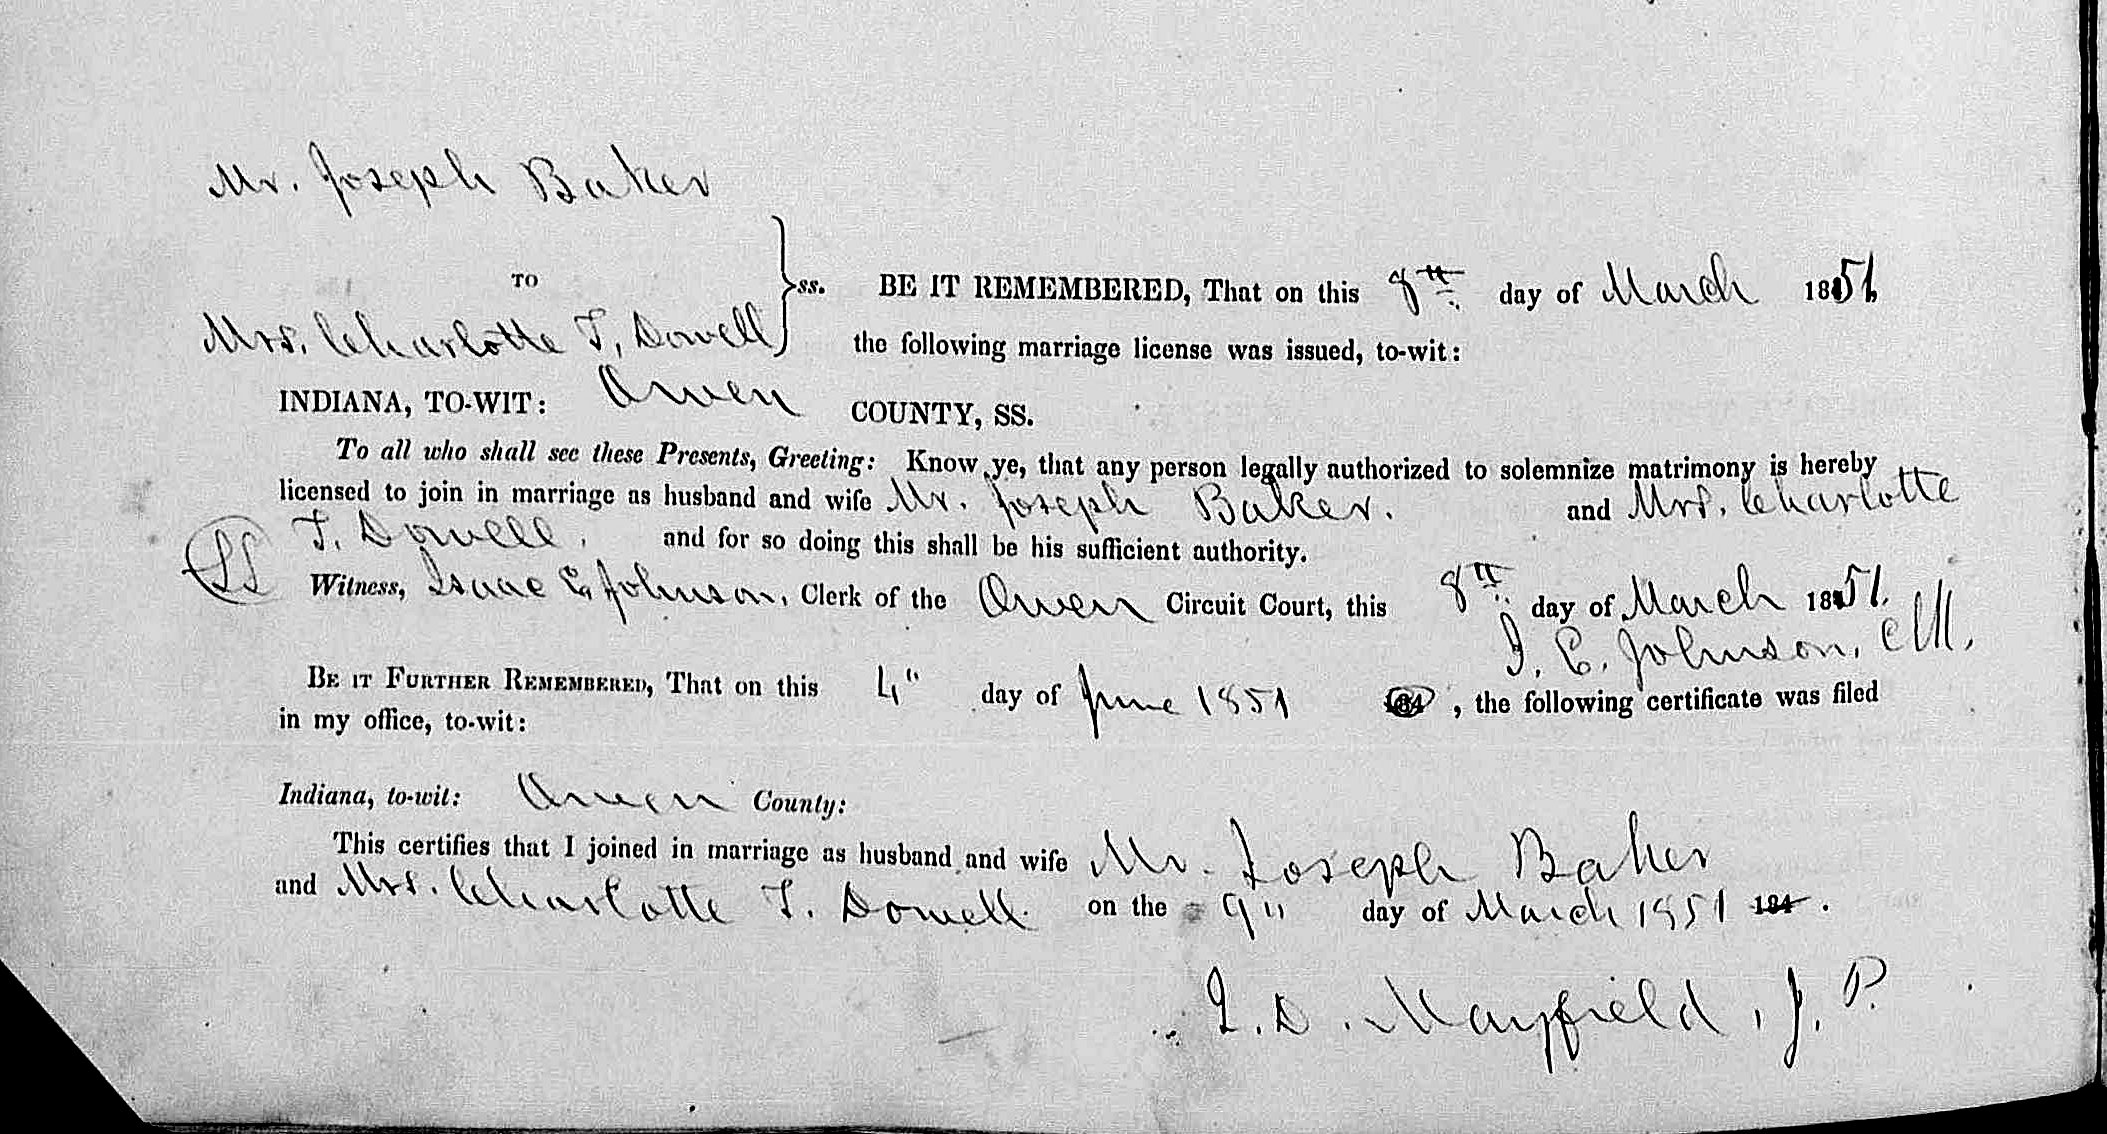 Mr. Joseph Baker
TO
ss. BE IT REMEMBERED, That on this 8th day of March 1851,
Mrs. Charlotte T. Dowell
the following marriage license was issued, to-wit:
INDIANA, TO-WIT: Owen COUNTY, SS.
To all who shall see these Presents, Greeting: Know ye, that any person legally authorized to solemnize matrimony is hereby
licensed to join in marriage as husband and wife Mr. Joseph Baker. and Mrs. Charlotte
T. Dowell. and for so doing this shall be his sufficient authority.
LS
Witness, Isaac E Johnson, Clerk of the Owen Circuit Court, this 8th day of March 1851.
I. E. Johnson, Clk.
BE IT FURTHER REMEMBERED, That on this 4" day of June 1851 184 , the following certificate was filed
in my office, to-wit:
Indiana, to-wit: Owen County:
This certifies that I joined in marriage as husband and wife Mr. Joseph Baker
and Mrs. Charlotte T. Dowell. on the 9" day of March 1851 184 .
Mayfield, J. P.